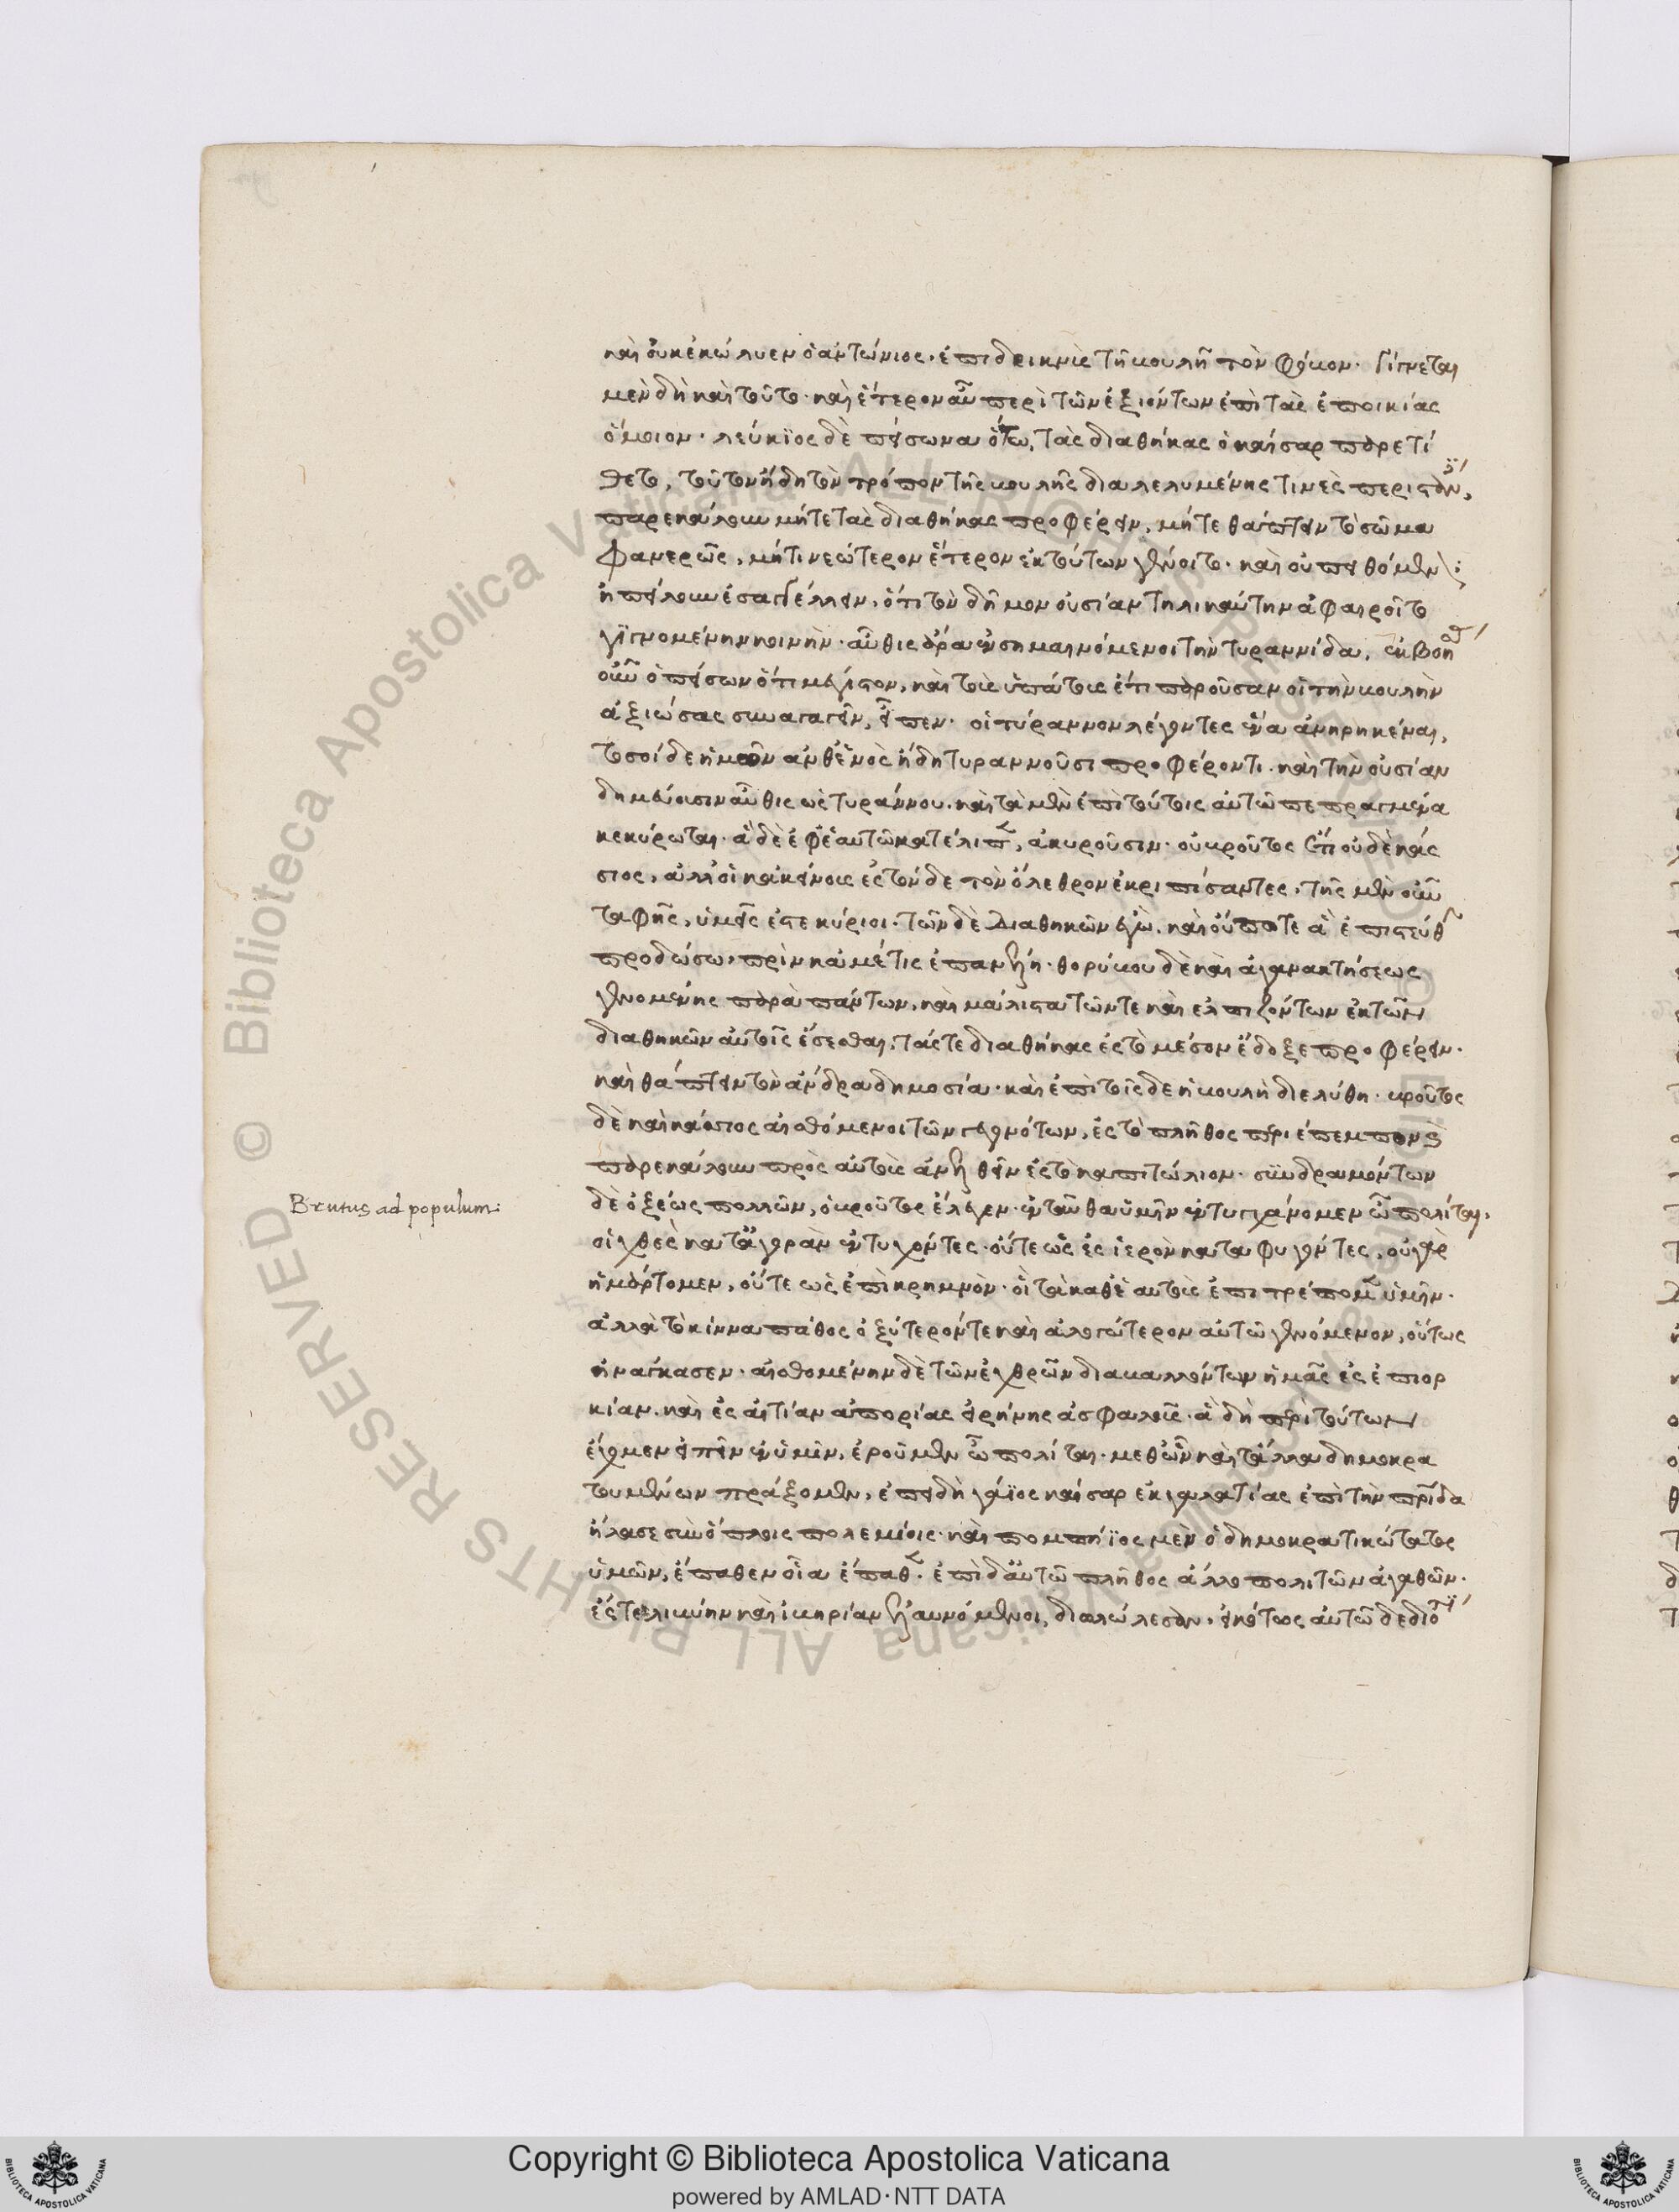 καὶ οὐκ ἐκώλυεν ὁ ἀντώνιος· ἐπιδεικνὺς τῆ βουλῆ τὸν φόβον. Γίγνεται
μὲν δὴ καὶ τοῦτο· καὶ ἕτερον αὖ περὶ τῶν ἐξιόντων ἐπὶ τὰς ἐποικίας
ὅμοιον. λεύκϊος δὲ πείσωνα ὅτω, τὰς διαθήκας ὁ καῖσαρ παρετί
θετο, τοῦτον ἤδη τὸν τρόπον τῆς βουλῆς διαλελυμένης τινὲς περιστάν,
παρεκάλουν μήτε τὰς διαθήκας προφέρειν, μήτε θάπτειν τὸ σῶμα
φανερῶς, μήτι νεώτερον ἕτερον ἐκ τούτων γένοιτο. καὶ οὐ πειθόμεν
ἠπείλουν ἐσαγγέλλειν, ὅτι τὸν δῆμον οὐσίαν τηλικαύτην ἀφαιροῖτο
γϊγνομένην κοινὴν. αὖθις ἄρα ἐνσημαινόμενοι τὴν τυραννίδα. ἐκβοήσας
οὖν ὁ πείσων ὅτι μέγιστον, καὶ τοὺς ὑπάτους ἔτι παροῦσαν οἱ τὴν βουλὴν
ἀξιώσας συναγαγεῖν, εἶπεν· οἱ τύραννον λέγοντες ἕνα ἀνηρηκέναι,
τοσοίδε ἡμῶν ἀνθἑνὸς ἤδη τυραννοῦσι προφέροντι. καὶ τὴν οὐσίαν
δημεύουσιν αὖθις ὡς τυράννου. καὶ τὰ μὲν ἐπὶ τούτοις αὐτῶ πεπραγμένα
κεκύρωται. ἃ δὲ ἐφἑαυτῶ κατέλιπεν, ἀκυροῦσιν. οὐ βροῦτος ἔτι οὐδὲ κάς
σιος, ἀλλοἱ κἀκείνους ἐς τόνδε τὸν ὄλεθρον ἐκριπίσαντες. τῆς μὲν οὖν
ταφῆς, ὑμεῖς ἐστε κύριοι. τῶν δὲ διαθηκῶν ἐγὼ. καὶ οὔποτε ἃ ἐπιστεύθην
προδώσω, πρὶν κἀμέ τις ἐπανέλη. θορύβου δὲ καὶ ἀγανακτήσεως
γενομένης παρὰ πάντων, καὶ μάλιστα τῶντε καὶ ελπιζόντων ἐκ τῶν
διαθηκῶν αὐτοῖς ἔσεσθαι. τάς τε διαθήκας ἐς τὸ μέσον ἔδοξε προφέρειν.
καὶ θάπτειν τὸν ἄνδρα δημοσία. καὶ ἐπὶ τοῖσδε ἡ βουλὴ διελύθη. βροῦτος
δὲ καὶ κάσσιος αἰσθόμενοι τῶν γεγονότων, ἐς τὸ πλῆθος περιέπεμπον καὶ
παρεκάλουν πρὸς αὐτοὺς ἀνελθεῖν ἐς τὸ καπιτώλιον. σϋνδραμόντων
Brutus ad populum:
δὲ ὀξέως πολλῶν, ὁ βροῦτος ἔλεγεν· ἐνταῦθα ὑμῖν ἐντυγχάνομεν ὦ πολῖται,
οἱ χθὲς κατἀγορὰν ἐντυχόντες. οὔτε ὡς ἐς ἱερὸν καταφυγόντες, οὐ γὰρ
ἡμάρτομεν, οὔτε ὡς ἐπὶ κρημνὸν. οἳ τὰ καθἑαυτοὺς ἐπιτρέπομεν ὑμῖν.
ἀλλὰ τὸ κίννα πάθος ὀξύτερόντε καὶ ἀλογώτερον αὐτῶ γενόμενον, οὕτως
ἠνάγκασεν. αἰσθομένην δὲ τῶν ἐχθρῶν διαβαλλόντων ἡμᾶς ἐς ἐπιορ
κίαν. καὶ ἐς αἰτίαν ἀπορίας εἰρήνης ἀσφαλοῦς. ἃ δὴ περὶ τούτων
ἔχομεν εἰπεῖν ἐν ὑμῖν, ἐροῦμεν ὦ πολῖται. μεθὧν καὶ τἄλλα δημοκρα
τουμένων πράξομεν, ἐπειδὴ γάϊος καῖσαρ ἐκ γαλατίας ἐπὶ τὴν πατρίδα
ἤλασε σὺν ὅπλοις πολεμίοις. καὶ πομπήϊος μὲν ὁ δημοκρατικώτατος
ὑμῶν, ἔπαθεν οἷα ἔπαθεν. ἐπὶ δαὐτῶ πλῆθος ἄλλο πολιτῶν ἀγαθῶν.
ἔς τε λιβύην καὶ ἰβηρίαν ἐλαυνόμενοι, διαλώλεσαν. εἰκότως αὐτῶ δεδιότι